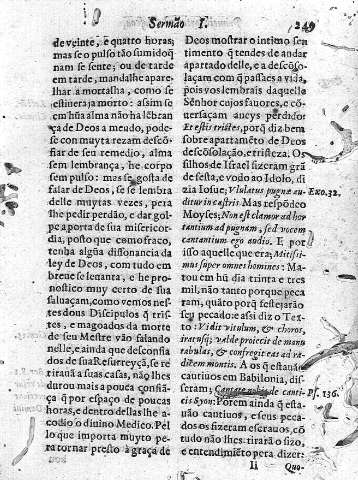 Sermão I. 249
de vinte, e quatro horas;
mas se o pulso tão sumido q̃
nam se sente, ou de tarde
em tarde, mandalhe apare-
lhar a mortalha, como se
estiuera ja morto: assim se
em hũa alma não ha lẽbran
ça de Deos a meudo, pode-
se com muyta rezam descõ-
fiar de seu remedio, alma
sem lembrança, he corpo
sem pulso: mas se gosta de
falar de Deos, se se lembra
delle muytas vezes, pera
lhe pedir perdão, e dar gol-
pe a porta de sua misericor-
dia, posto que como fraco,
tenha algũa dissonancia da
ley de Deos, com tudo em
breue se leuanta, e he pro-
nostico muy certo de sua
saluaçam, como vemos nes-
tes dous Discipulos q̃ tris-
tes, e magoados da morte
de seu Mestre vão falando
nelle, e ainda que desconfia
dos de sua Resurreyçã, se re
tirauã a suas casas, não lhes
durou mais a pouca confiã-
ça q̃ por espaço de poucas
horas, e dentro dellas lhe a-
codio o diuino Medico. Pel
lo que importa muyto pe-
ra tornar presto â graça de
Deos mostrar o intimo sen
timento q̃ tendes de andar
apartado delle, e a descõso-
laçam com q̃ passaes a vida,
pois vos lembrais daquelle
Senhor cujos fauores, e cõ-
uersaçam aueys perdido:
Et estis tristes, porq̃ diz bem
sobre apartamẽto de Deos
descõsolação, e tristeza. Os
filhos de Israel fizeram grã
de festa, e vodo ao Idolo, di
zia Iosue; Vlulatus pugnæ au-
ditur in castris. Mas respõdeo
Moyses; Non est clamor ad hor
tantium ad pugnam, sed vocem
cantantium ego audio. E por
isso aquelle que era; Mitissi-
mus super omnes homines: Ma-
tou em hũ dia trinta e tres
mil, não tanto porque peca
ram, quãto porq̃ festejarão
seu peccado: e assi diz o Tex-
to: Vidit vitulum, & choros,
iratusq; valde proiecit de manu
tabulas, & confregit eas ad ra-
dicem montis. A os q̃ estauã
catiuos em Babilonia, dis-
seram; Cantate nobis de canti-
cis Syon: Porem ainda q̃ est-
uão catiuos, e seus peca-
dos os fizeram escrauos, cõ
tudo não lhes tirarã o sizo,
e entendimẽto pera dizer:
Exo. 32.
Ps. 136.
Ii Quo-